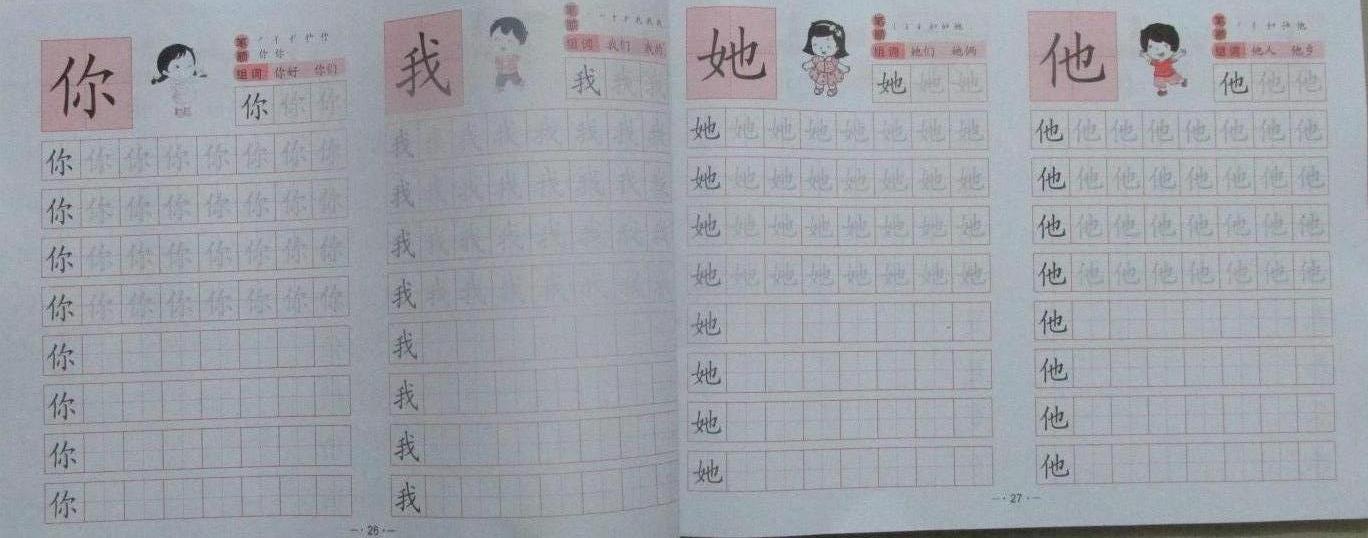 你
笔顺
组词 你好 你们
你 你 你
你 你 你 你 你 你 你 你
你 你 你 你 你 你 你 你
你 你 你 你 你 你 你 你
你 你 你 你 你 你 你 你
你
你
你
你
我
笔顺
组词 我们 我的
我 我 我
我 我 我 我 我 我 我 我
我 我 我 我 我 我 我 我
我 我 我 我 我 我 我 我
我 我 我 我 我 我 我 我
我
我
我
我
—·26·—
她
笔顺
组词 她们 她俩
她 她 她
她 她 她 她 她 她 她 她
她 她 她 她 她 她 她 她
她 她 她 她 她 她 她 她
她 她 她 她 她 她 她 她
她
她
她
她
他
笔顺
组词 他人 他乡
他 他 他
他 他 他 他 他 他 他 他
他 他 他 他 他 他 他 他
他 他 他 他 他 他 他 他
他 他 他 他 他 他 他 他
他
他
他
他
—·27·—